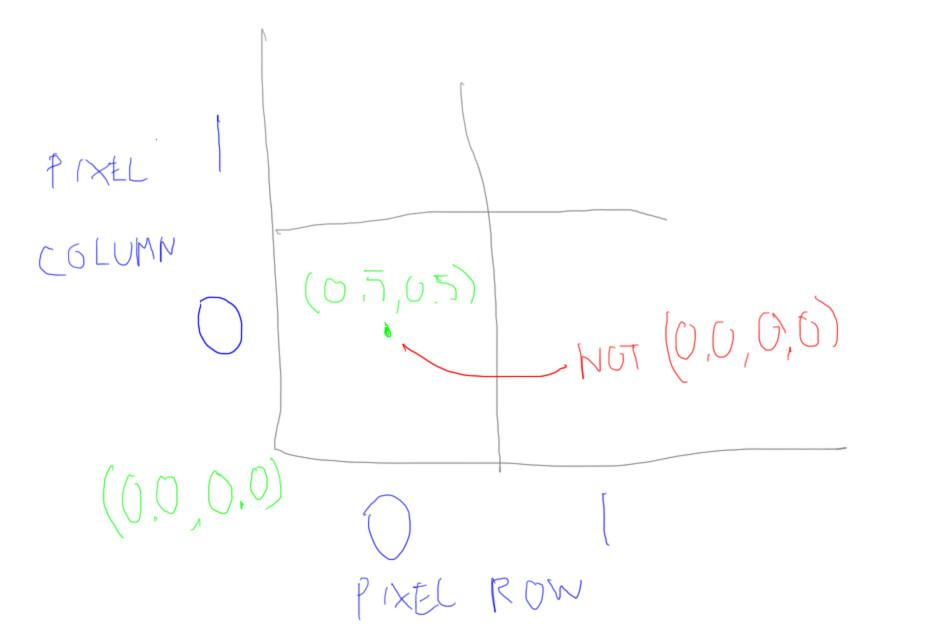 1
PIXEL
COLUMN
(0.5,0.5)
0
NOT (0.0,0,0)
(0.0,0.0)
0 1
PIXEL ROW